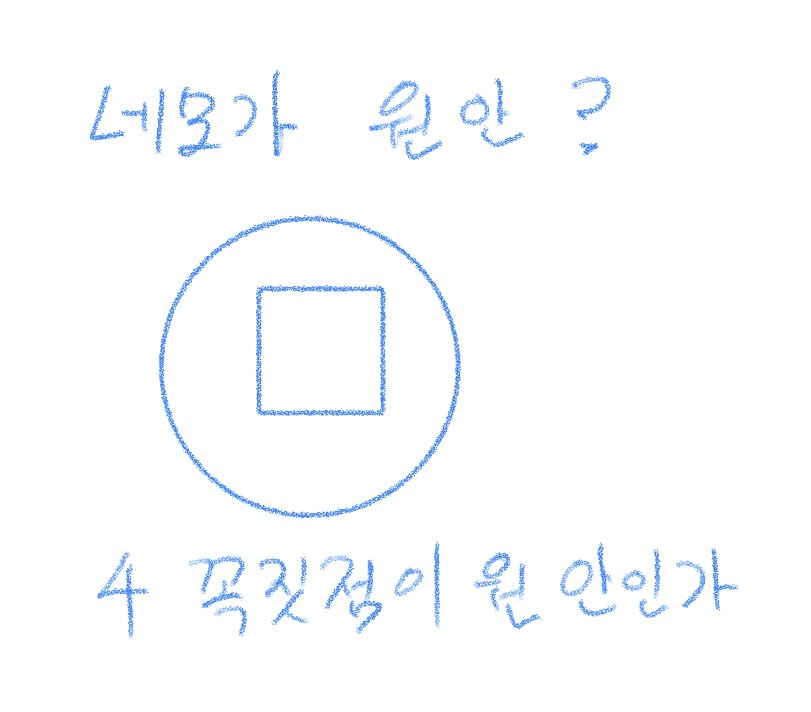 네모가 원안?
4 꼭짓점이 원 안인가